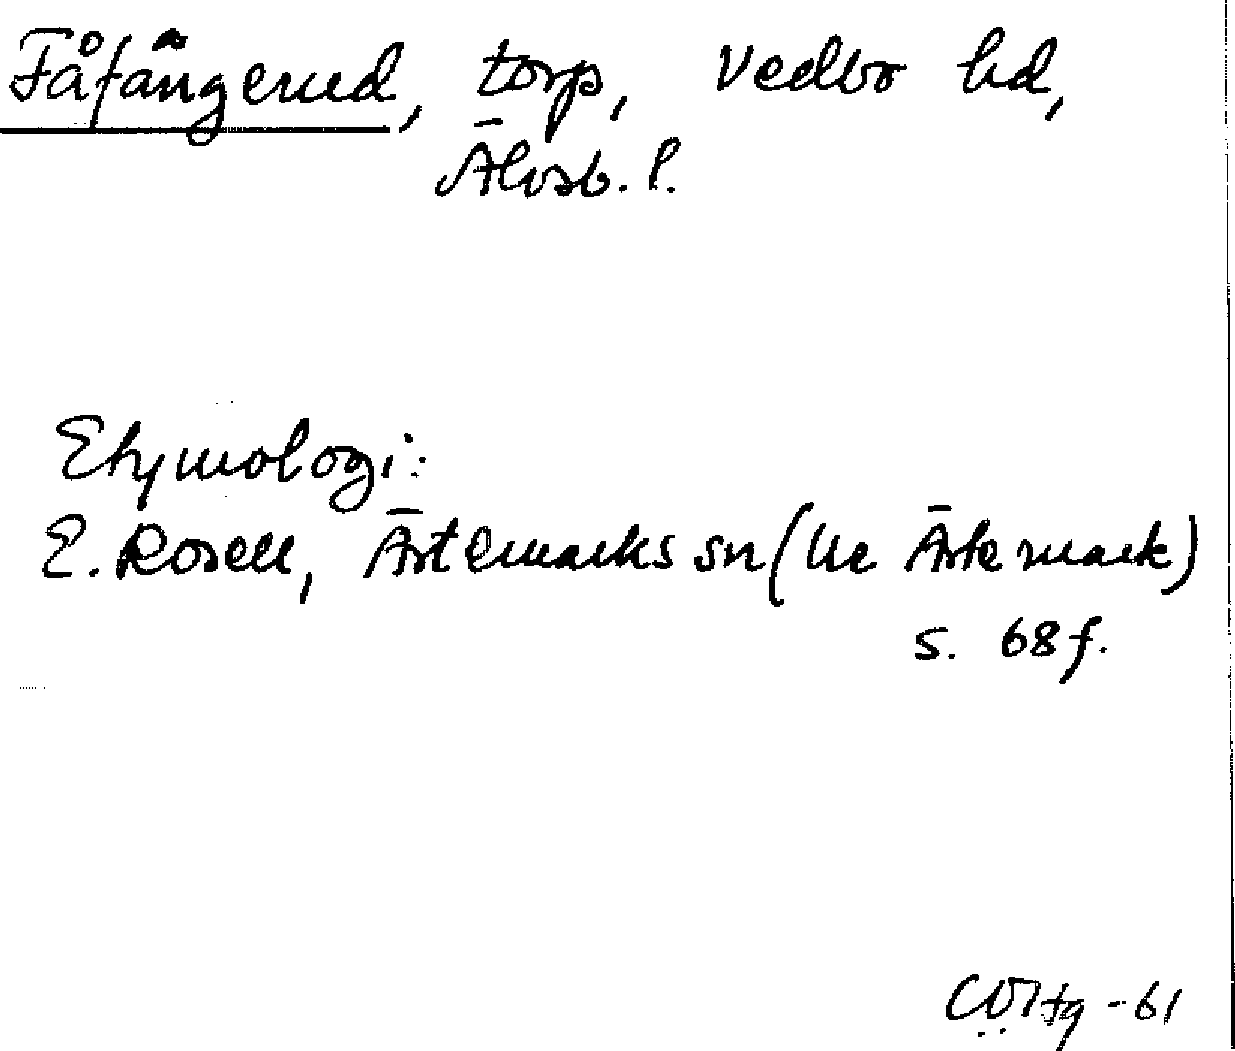 Fåfängerud, torp, Vedbo hd,
Älvsb. l.
Etymologi:
E. Rosell, Ärtemarks sn (ur Ärtemark)
s. 68 f.
-61